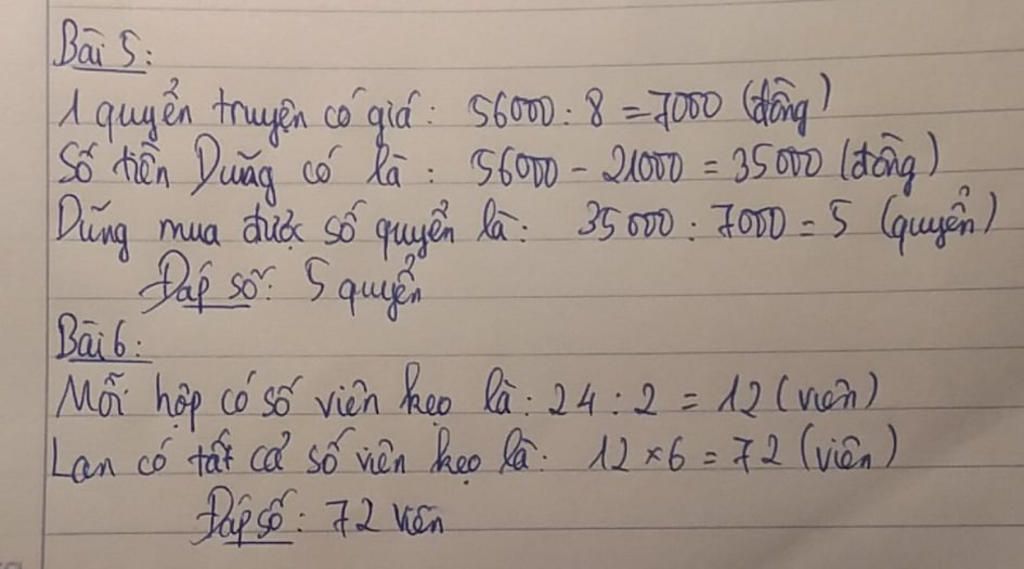 Bài 5:
1 quyển truyện có giá: 56000 : 8 = 7000 (đồng)
Số tiền Dũng có là: 56000 - 21000 = 35000 (đồng)
Dũng mua được số quyển là: 35000 : 7000 = 5 (quyển)
Đáp số: 5 quyển
Bài 6:
Mỗi hộp có số viên kẹo là: 24 : 2 = 12 (viên)
Lan có tất cả số viên kẹo là: 12 × 6 = 72 (viên)
Đáp số: 72 viên